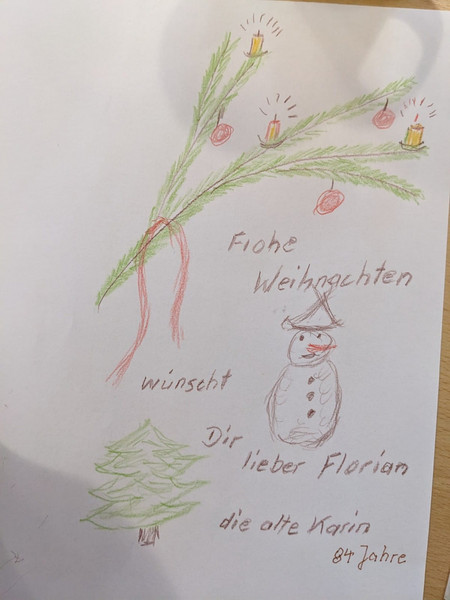 Frohe
Weihnachten
wünscht
Dir
lieber Florian
die alte Karin
84 Jahre